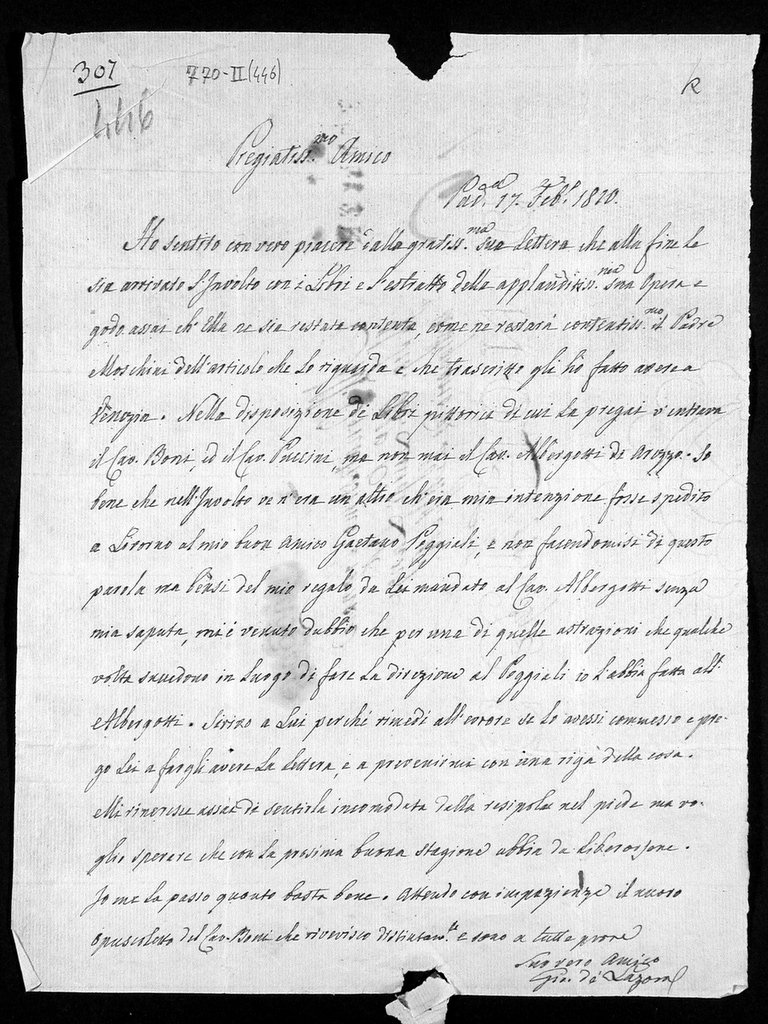 307
770-II (446)
R
446
Pregiatiss.mo Amico
Pad.a 17. Feb.o 1810.
Ho sentito con vero piacere dalla gratiss.ma sua Lettera che alla fine le
sia arrivato l'Involto con i Libri e l'estratto della applauditiss.ma sua Opera e
godo assai ch'Ella ne sia restata contenta, come ne restarà contentiss.mo il Padre
Moschini dell'articolo che lo riguarda e che trascritto gli hò fatto avere a
Venezia. Nella disposizione di Libri pittorici di cui La pregai v'entrava
il Cav. Boni, ed il Cav. Puccini, ma non mai il Cav. Albergotti di Arezzo. So
bene che nell'Involto ve n'era un altro ch'era mia intenzione fosse spedito
a Livorno al mio buon amico Gaetano Poggiali, e non facendomisi di questo
parola ma bensi del mio regalo da Lei mandato al Cav. Albergotti senza
mia saputa, mi è venuto dubbio che per una di quelle astrazioni che qualche
volta succedono in luogo di fare la direzione al Poggiali io l'abbia fatta all'
Albergotti. Scrivo a Lui perché rimedi all'errore se lo avessi commesso e pre-
go Lei a fargli avere la Lettera, e a prevenirmi con una riga della cosa.
Mi rincresce assai di sentirla incomodata dalla resipola nel piede ma vo-
glio sperare che con la prossima buona stagione abbia da liberarsene.
Io me la passo quanto basta bene. Attendo con impazienza il nuovo
opuscoletto del Cav. Boni che riverisco distintam.te e sono a tutte prove
Suo vero Amico
Gio. de Lazara